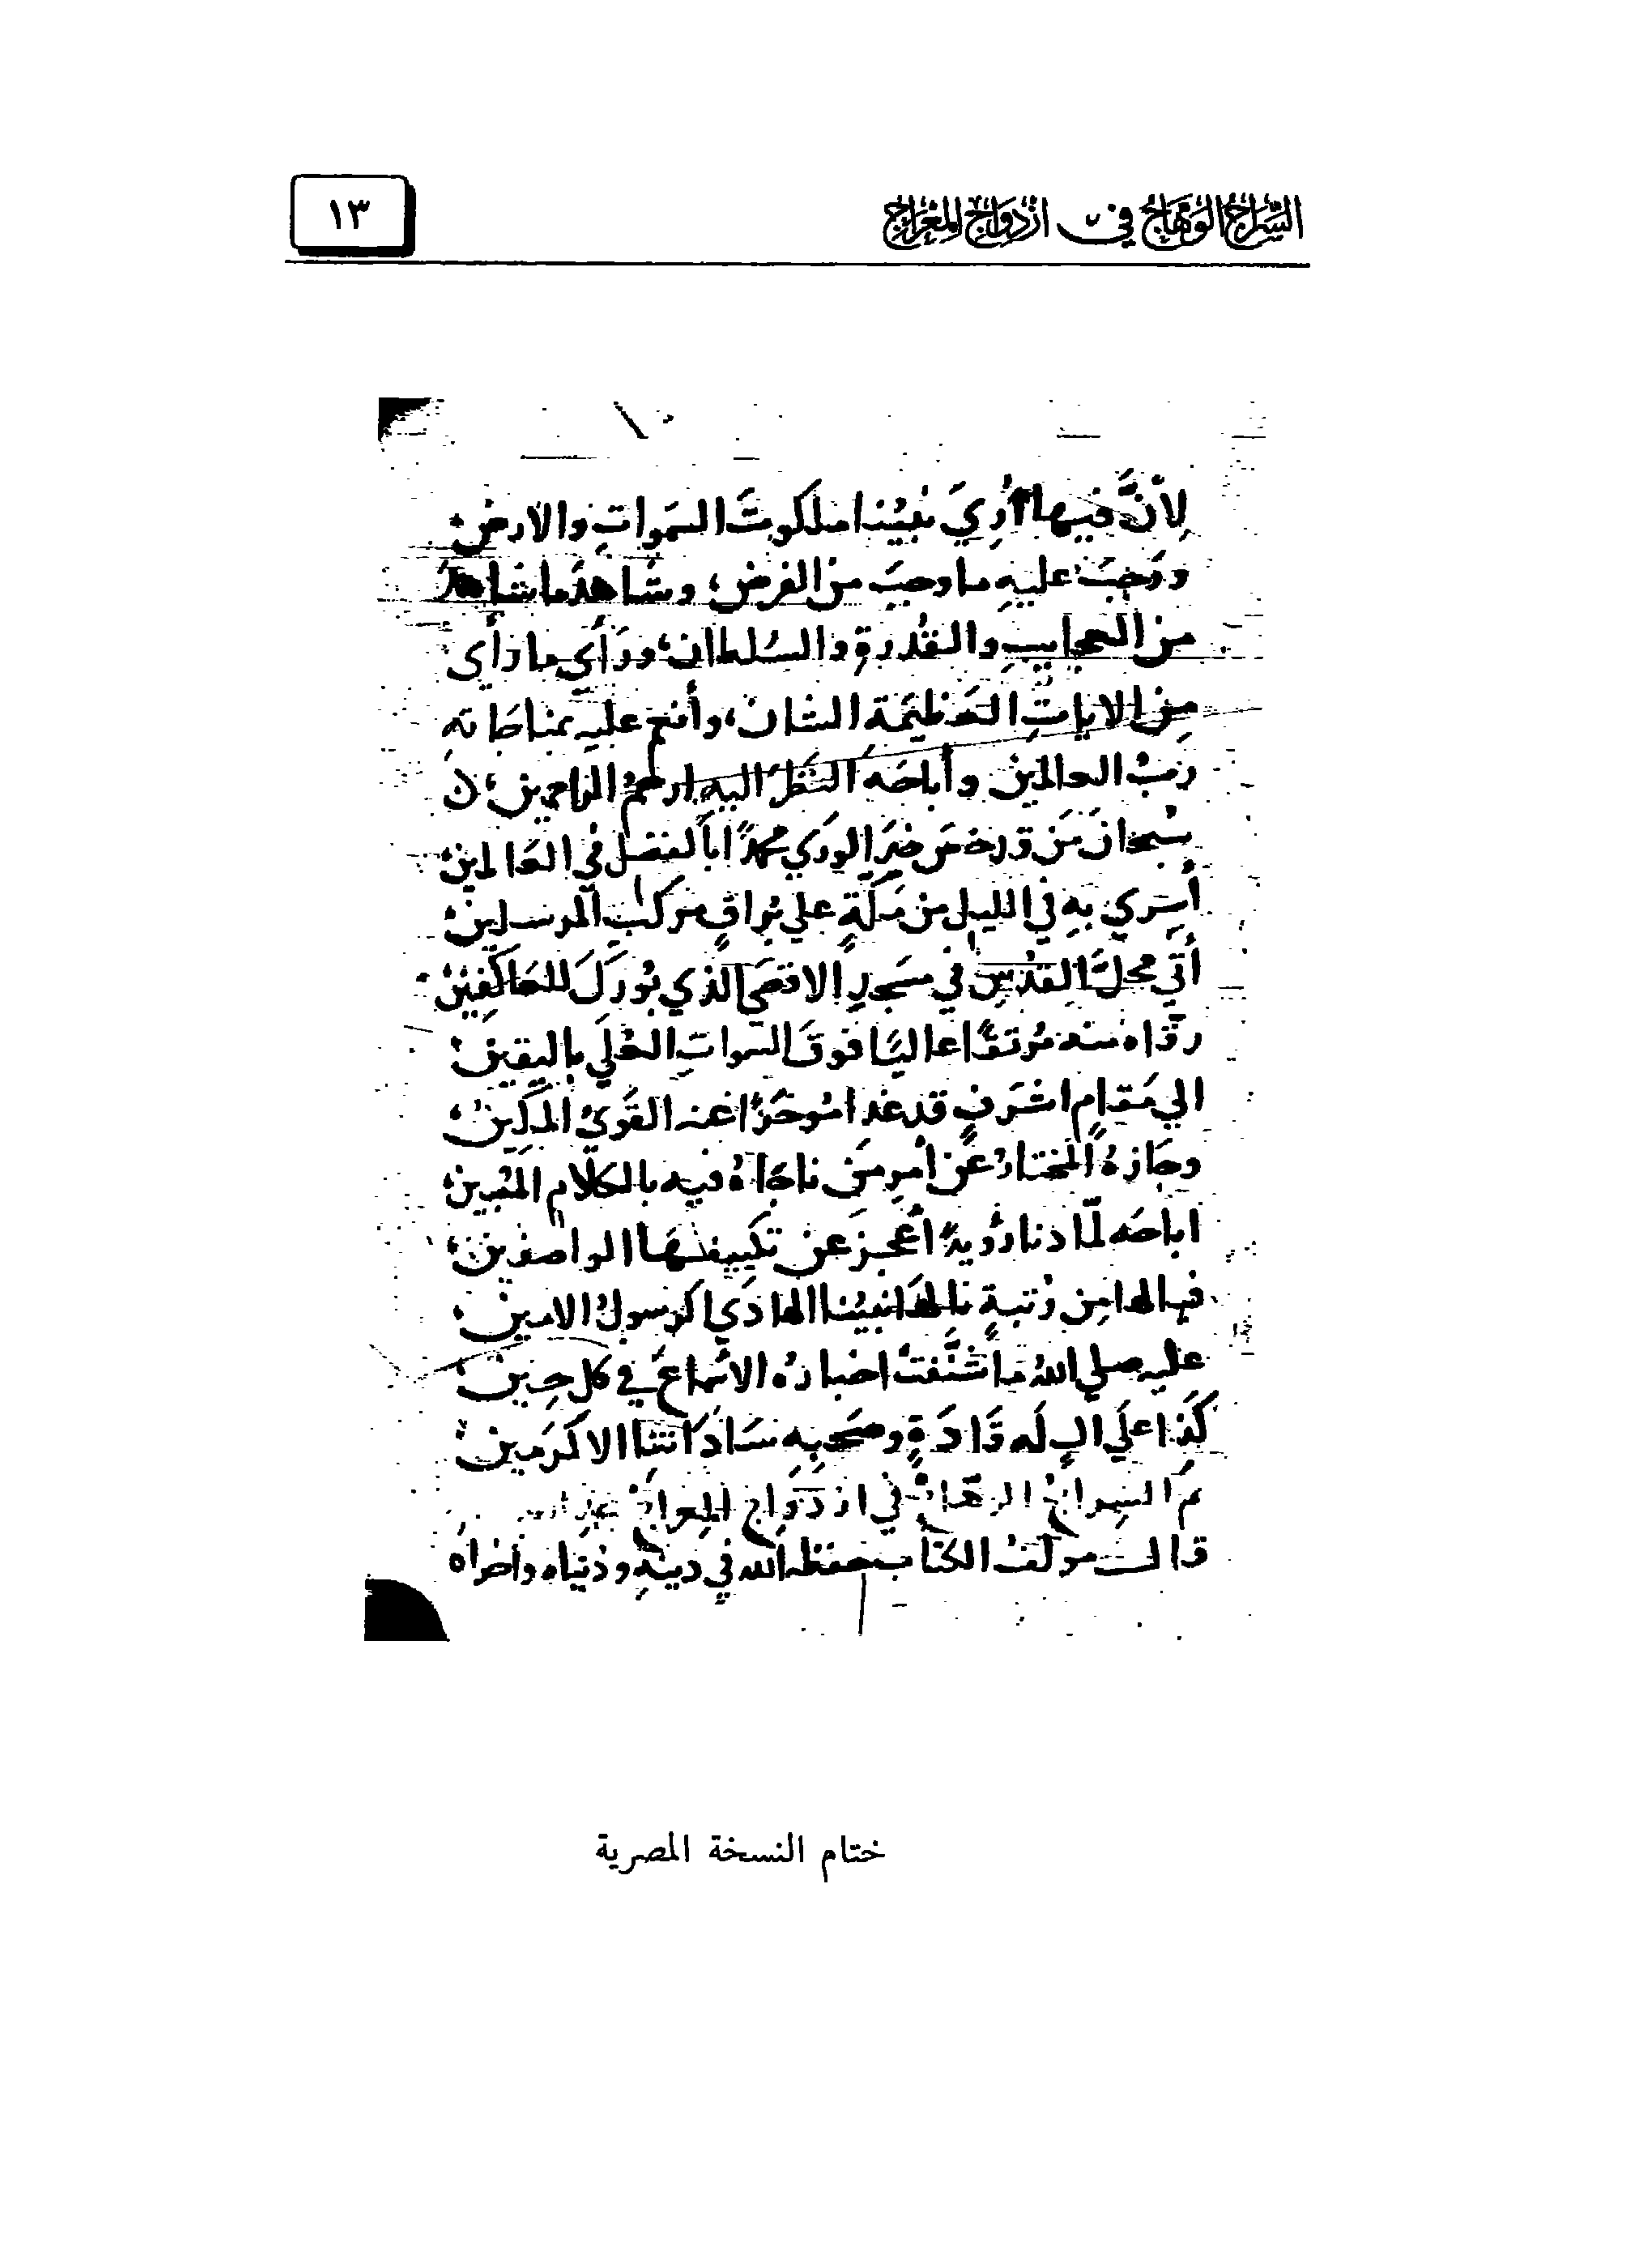 السراج الوهاج في ازدواج المعراج
١٣
لِأَنَّ فيها أُرِيَ نبيُّنا ملكوتَ السمواتِ والارض
ووَجَبَ عليهِ ما وجبَ من الفرض، وشاهدَ ما شاهد
من العجايبِ والقُدرةِ والسُلطان، ورَأَى ما رأى
مِن الاياتِ العَظيمَة الشان، وأنعم عليهِ بمناجاتهِ
ربُّ العالمين وأباحَهُ النَظرَ اليهِ ارحمُ الراحمين
سُبحانَ مَن قد خصَ خيرَ الورَي محمدًا بالفضل في العالمين
أُسري بهِ في الليل من مكةٍ علي بُراقٍ مركبِ المرسلين
أتي محلَّ القدُسِ في مسجدِ الاقصَى الذي بُورَك للعاكفين
رقّاه منه مُرتقًا عاليًا فوقَ السمواتِ العُلَي باليقين
الي مَقامٍ اشرَفٍ قد غدا مُوخَرًا عنه القَويُّ المكين
وجازهُ المختارُ عن أمرِ مَن ناجَاهُ فيه بالكلامِ المُبين
اباحَه لمّا دنا رُؤيةً أعجزَ عن تكييفهَا الواصفين
فيالها مِن رُتبةٍ نالهَا نبيُنا الهادَي الرسولُ الامين
عليه صلي اللهُ ما شَنَّفَتْ اخبارُه الاسماعَ في كل حِين
كَذا علَي الٍ لَه قَادَةٍ وصَحبِه سَادَاتنا الاكرَمين
تم السراجُ الوهّاجُ في ازدَوَاجِ المعراج
قال مولفُ الكتابِ حفظه الله في دينهِ ودُنياه واخراه
ختام النسخة المصرية